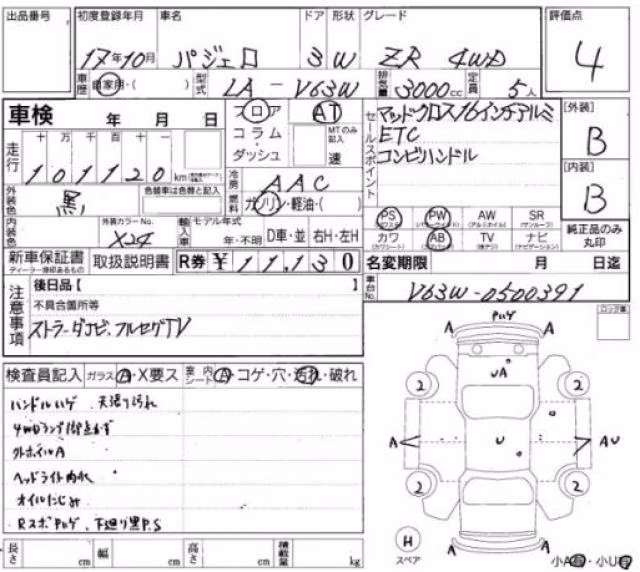 出品番号 初度登録年月 車名 ドア 形状 グレード 評価点
17年10月 パジェロ 3 W ZR 4WD 4
車歴 自家用・( ) 型式 LA-V63W 排気量 3000cc 定員 5人
車検 年 月 日 フロア AT セールスポイント マッドクロス16インチアルミ [外装]
コラム・ MTのみ記入 ETC B
走行 十 万 千 百 十 一 ダッシュ 速 コンビハンドル
101120 km 冷房 AAC [内装]
外装色 黒 色替車は色替と記入 燃料 ガソリン・軽油・( ) B
内装色 外装カラーNo. X24 輸入車 モデル年式 年・不明 D車・並 右H・左H
PS (パワステ) PW (パワーウィンド) AW (アルミホイル) SR (サンルーフ) 純正品のみ丸印
カワ (カワシート) AB (エアバッグ) TV (テレビ) ナビ (ナビゲーション)
新車保証書 ディーラー捺印あるもの 取扱説明書 R券 ¥11,130 名変期限 月 日迄
注意事項 後日品【 】 車台No. V63W-0500391
不具合箇所等 ロック票
フルセグTV
検査員記入 ガラス A・X要ス 室内 シート A・コゲ・穴・汚れ・破れ
ハンドルハゲ 天張り汚れ
外ホイルA
オイルにじみ
下廻り黒P.S
A A
UA
2 2
A U AU
2 2
H スペア A A
長さ cm 幅 cm 高さ cm 積載量 kg